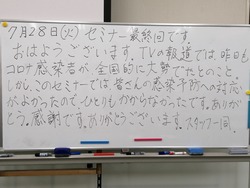 7月28日(火)セミナー最終回です。
おはようございます。TVの報道では、昨日も
コロナ感染者が全国的に大勢でたとのこと。
しかし、このセミナーでは皆さんの感染予防への対応
がよかったので、ひとりもかからなかったです。ありが
とう。感謝です。ありがとうございます。スタッフ一同。